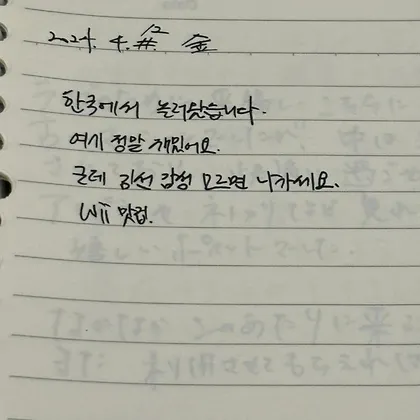 2024. 4. 12 金
한국에서 놀러왔습니다.
여기 정말 재밌어요.
근데 김선 감성 모르면 나가세요.
Wii 맛집.